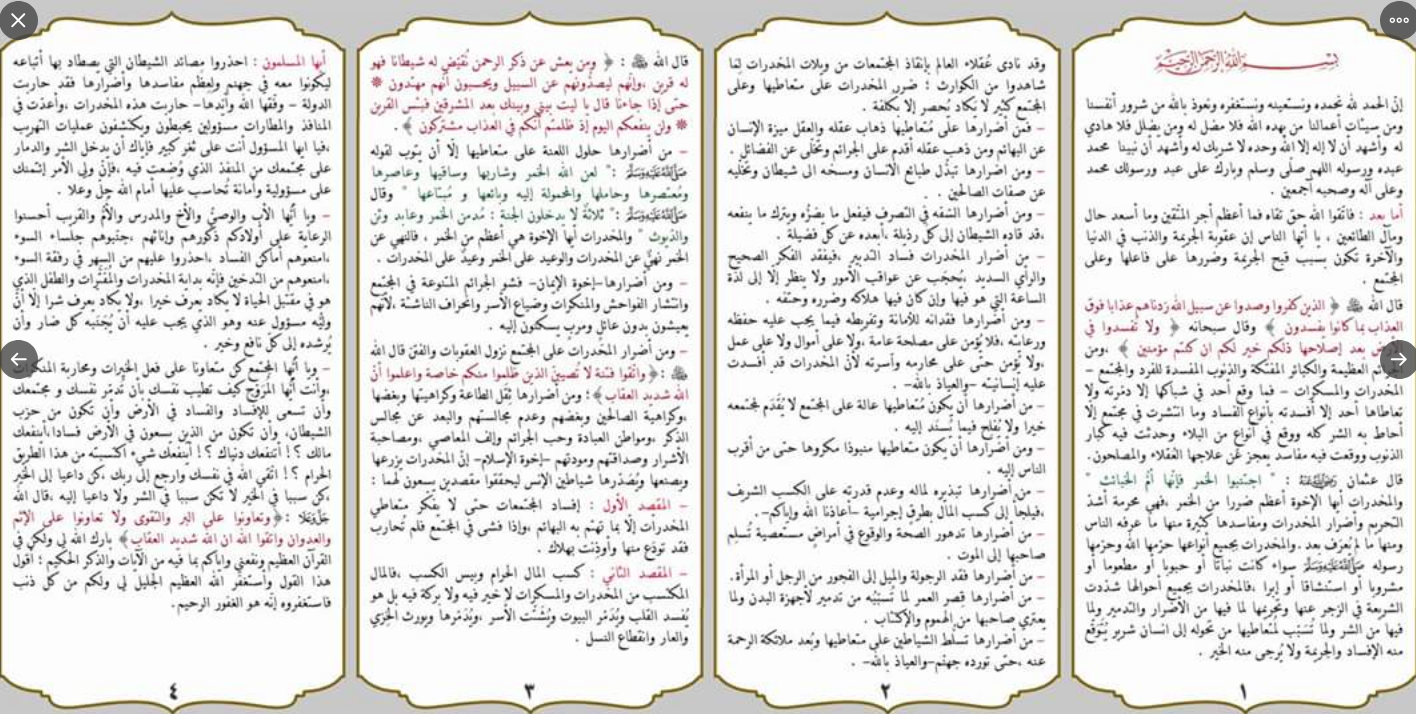 بسم الله الرحمن الرحيم
إنّ الحمد لله نحمده ونستعينه ونستغفره ونعوذ بالله من شرور أنفسنا
ومن سيئات أعمالنا من يهده الله فلا مضل له ومن يضلل فلا هادي
له وأشهد أن لا إله إلا الله وحده لا شريك له وأشهد أن نبينا محمد
عبده ورسوله اللهم صلّى وسلم وبارك على عبد ورسولك محمد
وعلى آله وصحبه أجمعين .
أما بعد : فاتّقوا الله حق تقاه فما أعظم أجر المتّقين وما أسعد حال
ومآل الطائعين ، يا أيّها الناس إن عقوبة الجريمة والذنب في الدنيا
والآخرة تكون بسبب قبح الجريمة وضررها على فاعلها وعلى
المجتمع .
قال الله ﷻ ﴿ الذين كفروا وصدوا عن سبيل الله زدناهم عذابا فوق
العذاب بما كانوا يفسدون ﴾ وقال سبحانه ﴿ ولا تفسدوا في
الأرض بعد إصلاحها ذلكم خير لكم ان كنتم مؤمنين ﴾ ،ومن
الجرائم العظيمة والكبائر المفتكة والذنوب المفسدة للفرد والمجتمع –
المخدرات والمسكرات – فما وقع أحد في شباكها إلا دمّرته ولا
تعاطاها أحد إلا أفسدته بأنواع الفساد وما انتشرت في مجتمع إلا
أحاط به الشر كله ووقع في أنواع من البلاء وحدثت فيه كبار
الذنوب ووقعت فيه مفاسد يعجز عن علاجها العقلاء والمصلحون.
قال عثمان رضي الله عنه : " اجتنبوا الخمر فإنّها أمّ الخبائث "
والمخدرات أيها الإخوة أعظم ضررا من الخمر ،فهي محرمة أشد
التحريم وأضرار المخدرات ومفاسدها كثيرة منها ما عرفه الناس
ومنها ما لم يُعرَف بعد .والمخدرات بجميع أنواعها حرّمها الله وحرّمها
رسوله ﷺ سواء كانت نباتا أو حبوبا أو مطعوما أو
مشروبا أو استنشاقا أو إبرا ،فالمخدرات بجميع أحوالها شددت
الشريعة في الزجر عنها وتحريمها لما فيها من الأضرار والتدمير ولما
فيها من الشر ولما تُسبّب لمُتعاطيها من تحوله إلى انسان شرير يُتوقّع
منه الإفساد والجريمة ولا يُرجى منه الخير .
١
وقد نادى عُقلاء العالم بإنقاذ المجتمعات من ويلات المخدرات لِمَا
شاهدوا من الكوارث ؛ ضرر المخدرات على متعاطيها وعلى
المجتمع كثير لا تكاد تُحصر إلا بكلفة .
– فمن أضرارها على مُتعاطيها ذهاب عقله والعقل ميزة الإنسان
عن البهائم ومن ذهب عقله أقدم على الجرائم وتخلّى عن الفضائل .
– ومن اضرارها تبدُّل طبائع الانسان ومسخه الى شيطان وتخلّيه
عن صفات الصالحين .
– ومن أضرارها السّفه في التّصرف فيفعل ما يضرُّه ويترك ما ينفعه
،قد قاده الشيطان إلى كلّ رذيلة ،أبعده عن كلّ فضيلة .
– من أضرار المخدرات فساد التّدبير ،فيفقد الفكر الصحيح
والرأي السديد ،يُحجَب عن عواقب الأمور ولا ينظر إلّا إلى لذّة
الساعة التي هو فيها وإن كان فيها هلاكه وضرره وحتفه .
– ومن أضرارها فقدانه للأمانة وتفريطه فيما يجب عليه حفظه
ورعايته ،فلا يُؤمن على مصلحة عامة ،ولا على أموال ولا على عمل
،ولا يُؤمن حتّى على محارمه وأسرته لأنّ المخدرات قد أفسدت
عليه إنسانيّته –والعياذ بالله– .
– من أضرارها أن يكون مُتعاطيها عالة على المجتمع لا يُقدّم لمجتمعه
خيرا ولا يُفلِح فيما يُسنَد إليه .
– ومن أضرارها أن يكون متعاطيها منبوذا مكروها حتّى من أقرب
الناس إليه .
– من أضرارها تبذيره لماله وعدم قدرته على الكسب الشريف
،فيلجأ إلى كسب المال بطرق إجرامية –أعاذنا الله وإياكم– .
– من أضرارها تدهور الصحة والوقوع في أمراض مستعصية تُسلِم
صاحبها إلى الموت .
– من أضرارها فقد الرجولة والميل إلى الفجور من الرجل أو المرأة.
– من أضرارها قِصر العمر لما تُسبّبُه من تدمير لأجهزة البدن ولما
يعتري صاحبها من الهموم والاكتئاب .
– من أضرارها تسلّط الشياطين على متعاطيها وبُعد ملائكة الرحمة
عنه ،حتّى تورده جهنّم–والعياذ بالله– .
٢
قال الله ﷻ : ﴿ ومن يعش عن ذكر الرحمن نُقيّض له شيطانا فهو
له قرين ،وإنّهم ليصدّونهم عن السبيل ويحسبون أنّهم مهتدون *
حتى إذا جاءنا قال يا ليت بيني وبينك بعد المشرقين فبئس القرين
* ولن ينفعكم اليوم إذ ظلمتم أنّكم في العذاب مشتركون ﴾ .
– من أضرارها حلول اللعنة على متعاطيها إلّا أن يتوب لقوله
ﷺ :" لعن الله الخمر وشاربها وساقيها وعاصرها
ومُعتصرها وحاملها والمحمولة إليه وبائعها و مُبتاعها " وقال
ﷺ :" ثلاثة لا يدخلون الجنة : مُدمن الخمر وعابد وثن
والدّيوث " والمخدرات أيها الإخوة هي أعظم من الخمر ، فالنهي عن
الخمر نهيٌ عن المخدرات والوعيد على الخمر وعيدٌ على المخدرات .
– ومن أضرارها–إخوة الإيمان– فشو الجرائم المتنوعة في المجتمع
وانتشار الفواحش والمنكرات وضياع الأسر وانحراف الناشئة ،لأنّهم
يعيشون بدون عائلٍ ومربٍ يسكنون إليه .
– ومن أضرار المخدرات على المجتمع نزول العقوبات والفتن قال الله
ﷻ :﴿واتّقوا فتنة لا تُصيبنّ الذين ظلموا منكم خاصة واعلموا أنّ
الله شديد العقاب﴾؛ ومن أضرارها ثِقَل الطاعة وكراهيتها وبغضها
،وكراهية الصالحين وبغضهم وعدم مجالستهم والبعد عن مجالس
الذكر ،ومواطن العبادة وحب الجرائم وإلف المعاصي ،ومصاحبة
الأشرار وصداقتهم ومودتهم –إخوة الإسلام– إنّ المخدرات يزرعها
ويصنعها ويُصدّرها شياطين الإنس ليحققوا مقصدين يسعون لهما :
– المقصد الأول : إفساد المجتمعات حتى لا يفكّر متعاطي
المخدرات إلّا بما تهتم به البهائم ،وإذا فشى في المجتمع فلم تُحارب
فقد تودّع منها وأوذنت بهلاك .
– المقصد الثاني : كسب المال الحرام وبيس الكسب ،فالمال
المكتسب من المخدرات والمسكرات لا خير فيه ولا بركة فيه بل هو
يُفسد القلب ويُدمّر البيوت ويُشتّت الأسر ،ويُدمّرها ويورث الخزي
والعار وانقطاع النسل .
٣
أيها المسلمون : احذروا مصائد الشيطان التي يصطاد بها أتباعه
ليكونوا معه في جهنم ولِعِظم مفاسدها وأضرارها فقد حاربت
الدولة – وفّقها الله وأيّدها– حاربت هذه المخدرات ،وأعدّت في
المنافذ والمطارات مسؤولين يحبطون ويكتشفون عمليات التهريب
،فيا ايها المسؤول أنت على ثغر كبير فإياك أن يدخل الشر والدمار
على مجتمعك من المنفذ الذي وُضعت فيه ،فإنّ ولي الأمر إئتمنك
على مسؤولية وأمانة تُحاسب عليها أمام الله جلّ وعلا .
– ويا أيّها الأب والوصيّ والأخ والمدرس والأمّ والقريب أحسنوا
الرعاية على أولادكم ذكورهم وإناثهم ،جنّبوهم جلساء السوء
،امنعوهم أماكن الفساد ،احذروا عليهم من السهر في رفقة السوء
،امنعوهم من التدخين فإنّه بداية المخدرات والمُفتّرات والطفل الذي
هو في مقتبل الحياة لا يكاد يعرف خيرا ،ولا يكاد يعرف شرا إلّا أنّ
وليّه مسؤول عنه وهو الذي يجب عليه أن يُجنّبه كل ضار وأن
يُرشده إلى كلّ نافع وخير .
– ويا أيّها المجتمع كن متعاونا على فعل الخيرات ومحاربة المنكرات
،وأنت أيّها المروّج كيف تطيب نفسك بأن تُدمّر نفسك و مجتمعك
وأن تسعى للإفساد والفساد في الأرض وأن تكون من حزب
الشيطان، وأن تكون من الذين يسعون في الأرض فسادا،أينفعك
مالك ؟! أتنفعك دنياك ؟! أينفعك شيء اكتسبته من هذا الطريق
الحرام ؟! اتقي الله في نفسك وارجع إلى ربك ،كن داعيا إلى الخير
،كن سببا في الخير لا تكن سببا في الشر ولا داعيا إليه ،قال الله
جل وعلا :﴿وتعاونوا على البر والتقوى ولا تعاونوا على الإثم
والعدوان واتقوا الله ان الله شديد العقاب﴾ بارك الله لي ولكم في
القرآن العظيم ونفعني وإياكم بما فيه من الآيات والذكر الحكيم ؛ أقول
هذا القول وأستغفر الله العظيم الجليل لي ولكم من كل ذنب
فاستغفروه إنّه هو الغفور الرحيم.
٤